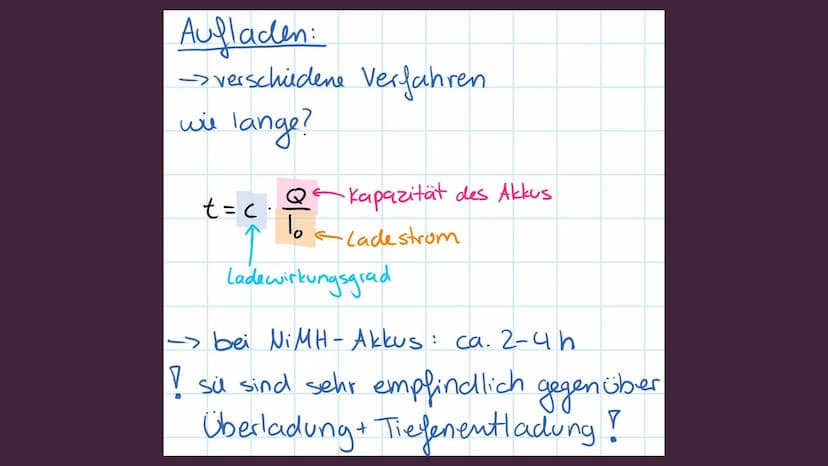 Aufladen:
→ verschiedene Verfahren
wie lange?
t = c · Q/I₀
← Kapazität des Akkus
← Ladestrom
Ladewirkungsgrad
→ bei NiMH-Akkus: ca. 2-4 h
! sie sind sehr empfindlich gegenüber
Überladung + Tiefenentladung !